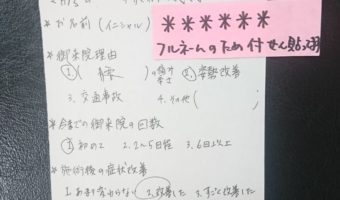 * お名前（イニシャル）
******
フルネームのため付せん貼ってます
* 御来院理由
① （　　　）の痛み ② 姿勢改善
3. 交通事故 4. その他（　　　）
* 今までの御来院の回数
① 初めて 2. 2〜5日程 3. 6日以上
* 施術後の症状改善
1. あまり変わらない ② 改善した 3. すごく改善した